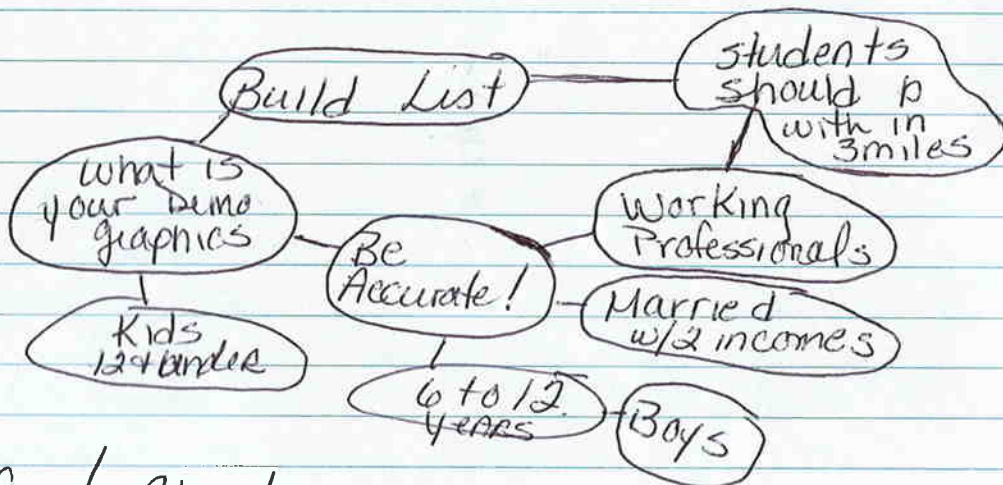 Build List
students
should b
with in
3miles
what is
your Demo
graphics
Working
Professionals
Be
Accurate!
Married
w/2 incomes
Kids
12 & under
6 to 12
years
Boys